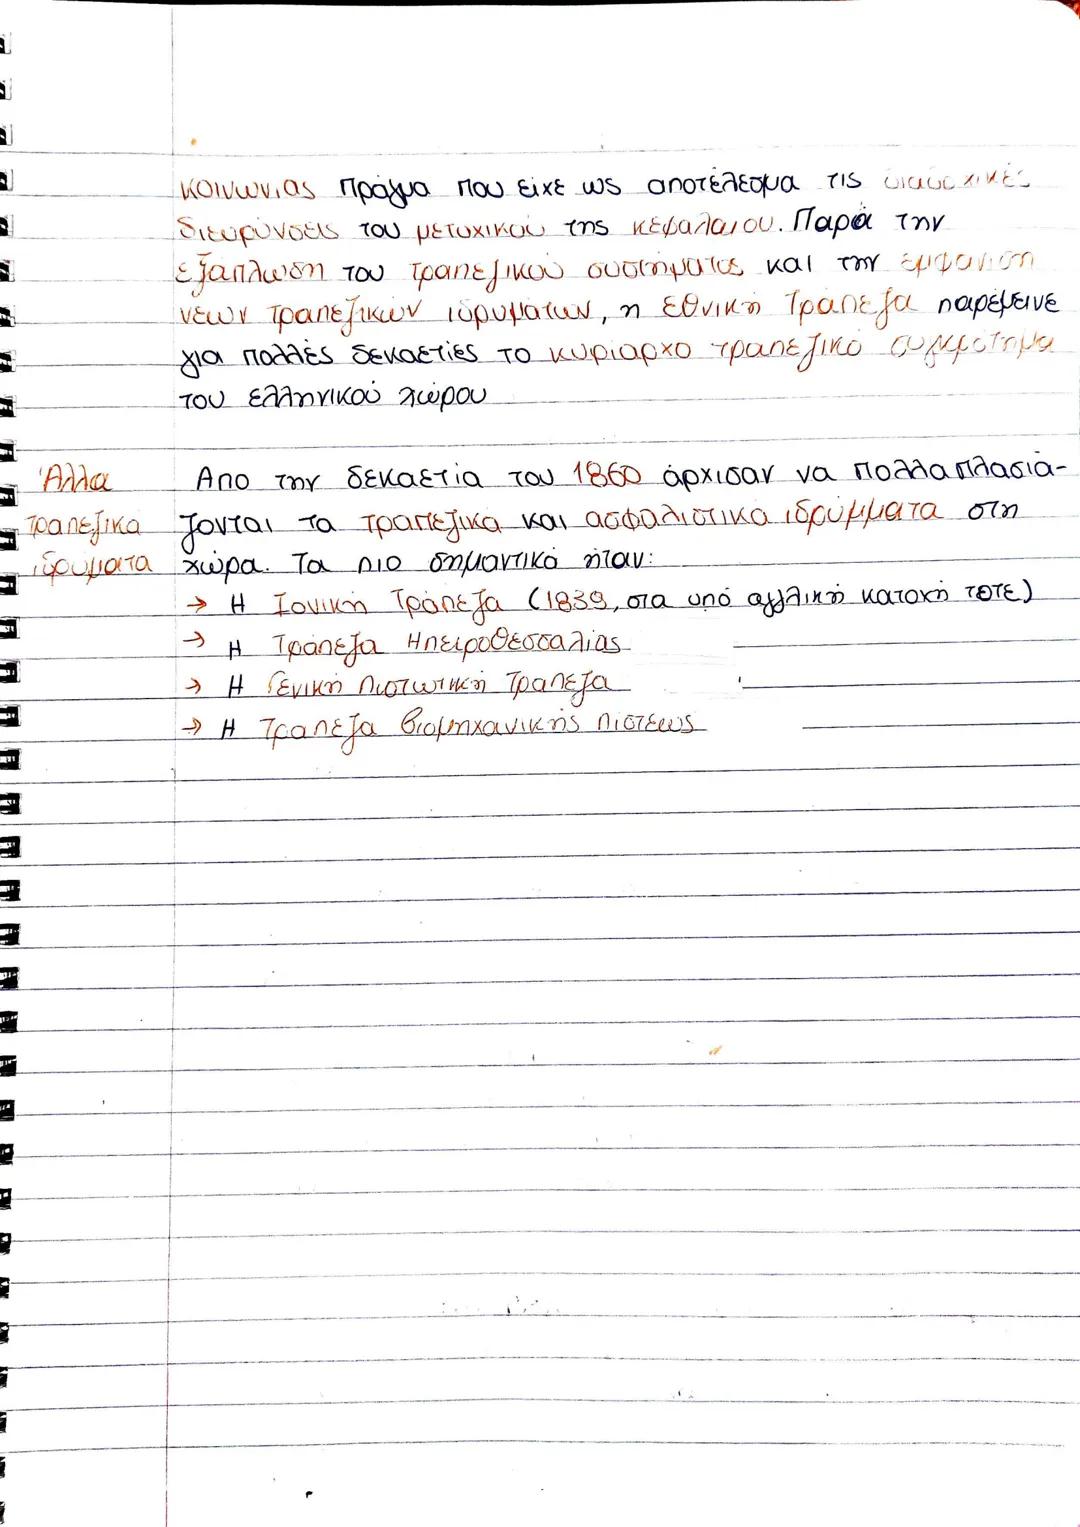 κοινωνιας πράγμα που είχε ως αποτέλεσμα τις διαδοχικές
διευρύνσεις του μετοχικού της κεφαλαιου. Παρά την
εξάπλωση του τραπεζικού συστήματος και την εμφάνιση
νέων τραπεζικών ιδρυμάτων, η εθνική Τράπεζα παρέμεινε
για πολλές δεκαετίες το κυρίαρχο τραπεζικό συγκρότημα
του ελληνικού χώρου
Άλλα Απο την δεκαετία του 1860 άρχισαν να πολλαπλασιά-
τραπεζικά ζονται τα τραπεζικά και ασφαλιστικά ιδρύμματα στη
ιδρυματα χώρα. Τα πιο σημαντικά ήταν:
→ Η Ιονική Τράπεζα (1839, στα υπό αγγλική κατοχή τότε)
→ Η Τράπεζα Ηπειροθεσσαλίας
→ Η Γενική Πιστωτική Τράπεζα
→ Η Τράπεζα βιομηχανικής πίστεως